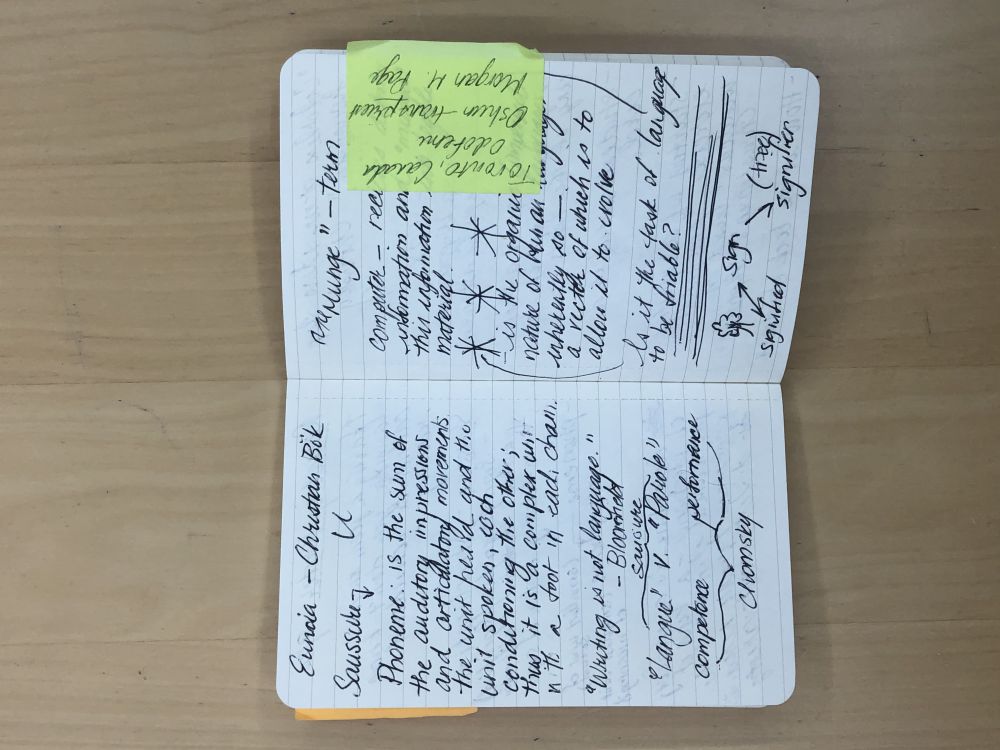 Eunoia – Christian Bök
U
Saussure
Phoneme is the sum of
the auditory impressions
and articulatory movements
the unit heard and the
unit spoken, each
conditioning the other;
thus it is a complex unit
with a foot in each chain.
"Writing is not language."
– Bloomfield
saussure
"Langue" v. "Parole"
competence performance
Chomsky
"expunge" – term
computer –
information and
this information
material
– is the organic
nature of human language
inherently so –
a vector of which is to
allow it to evolve
Is it the task of language
to be friable?
sign
signified
(tree)
signifier
Toronto, Canada
Odofemi
Oshun transpriest
Morgan M. Page